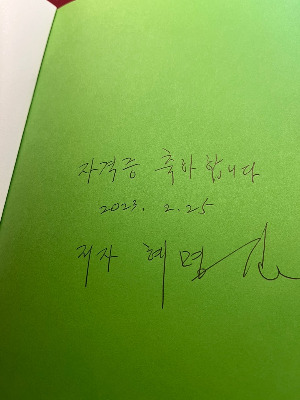 자격증 축하합니다
2023. 2. 25
저자 혜명